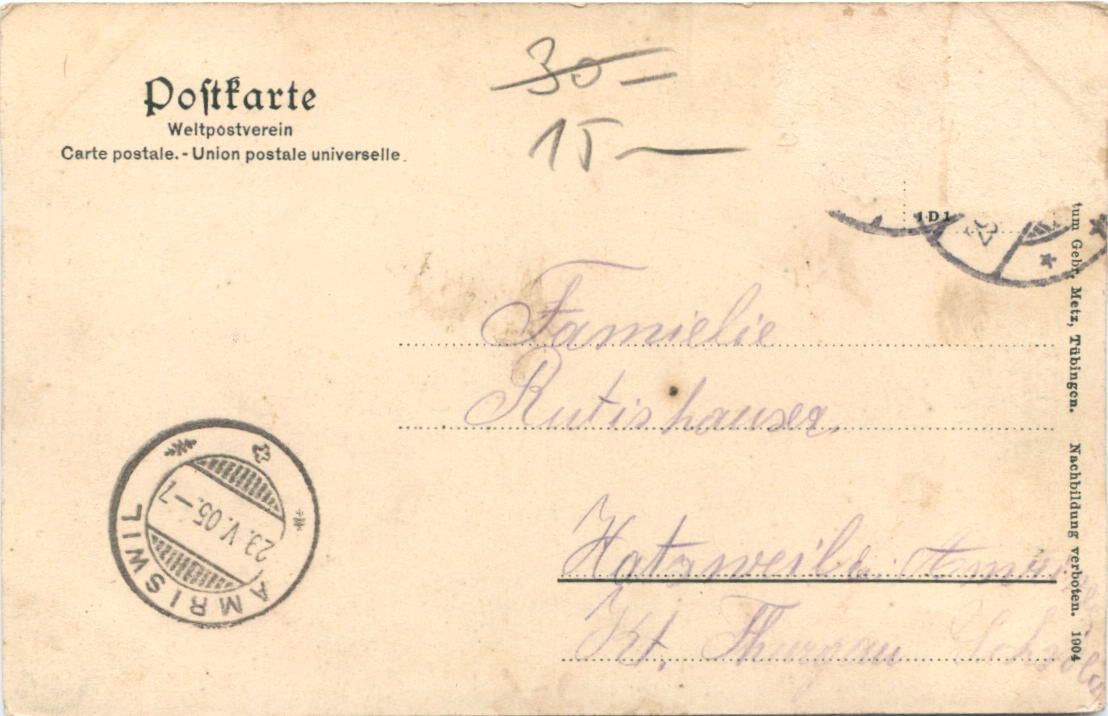 Postkarte
Weltpostverein
Carte postale. - Union postale universelle.
30 =
15 —
1D1
Famielie
Rutishauser
Hatzweiler
Kt. Thurgau
AMRISWIL
23. V. 05. – 7
tum Gebr. Metz, Tübingen. Nachbildung verboten. 1904